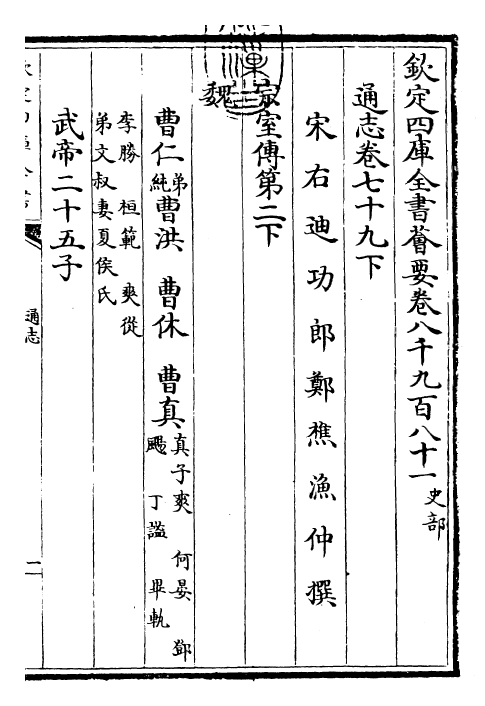 欽定四庫全書薈要卷八千九百八十一 史部
通志卷七十九下
宋右迪功郎鄭樵漁仲撰
宗室傳第二下
魏
曹仁 弟純 曹洪 曹休 曹真 真子爽 何晏 鄧颺 丁謐 畢軌
李勝 桓範 爽從弟文叔妻夏侯氏
武帝二十五子
通志